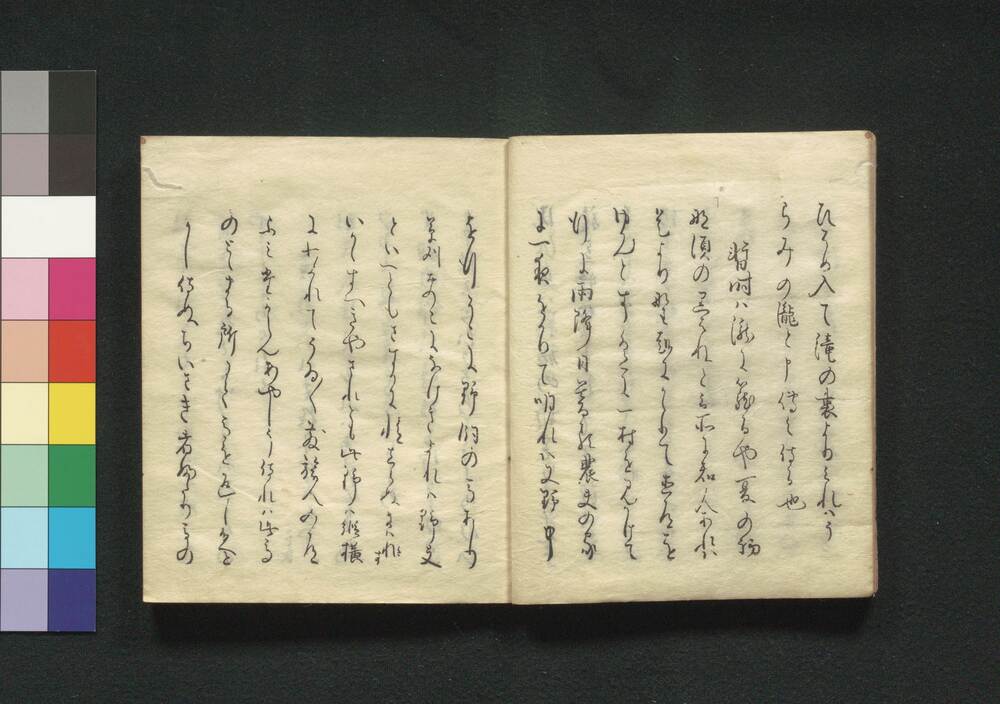 ひそめ入て滝の裏よりみれハう
らみの瀧と申傳え侍る也
暫時ハ滝に籠るや夏の初
那須の黒はねと云所に知人あれハ
是より野越にかゝりて直道を
ゆかんとすはるかに一村を見かけて
行に雨降日暮る農夫の家
に一夜をかりて明れハ又野中
を行そこに野飼の馬あり
草刈おのこになけきよれハ野夫
といへともさすかに情しらぬにハ非す
いかゝすへきやされとも此野ハ縦横
にわかれてうゐ〱敷旅人の道
ふみたかえんあやしう侍れハ此馬
のとゝまる所にて馬を返し給へと
かし侍ぬちいさき者ふたり馬の